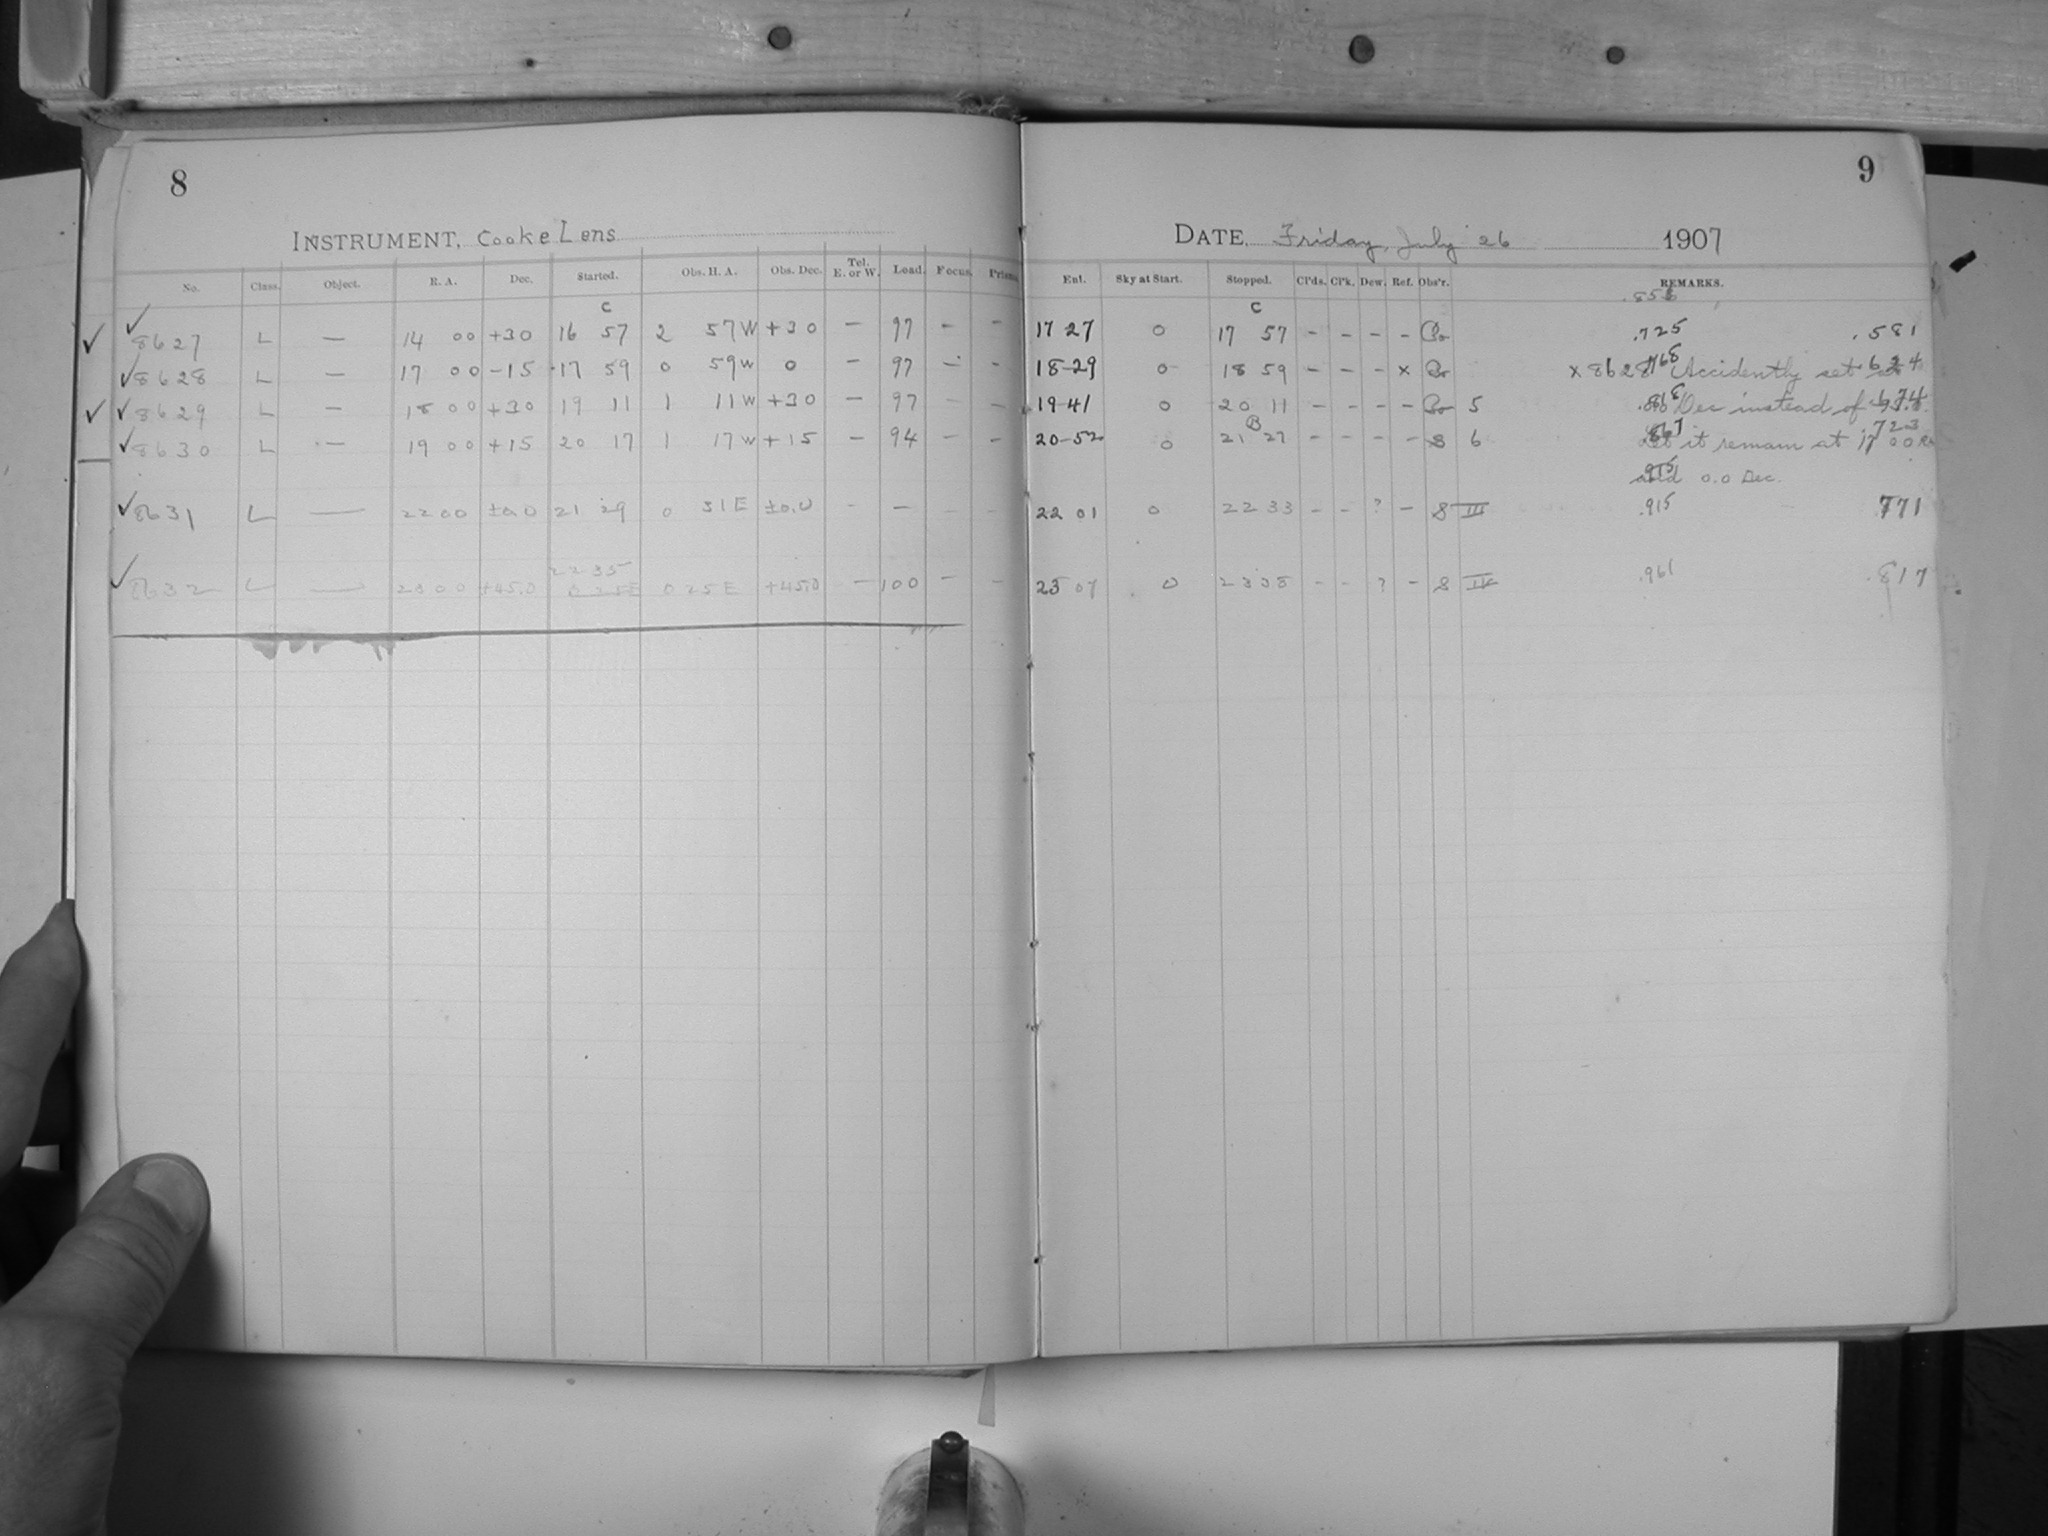 8
9
INSTRUMENT, Cooke Lens
DATE, Friday, July 26 1907
No. Class. Object. R. A. Dec. Started. Obs. H. A. Obs. Dec. Tel. E. or W. Load. Focus. Prisms. Ent. Sky at Start. Stopped. Cl'ds. Cl'k. Dew. Ref. Obs'r. REMARKS.
C C
✓ ✓ 8627 L — 14 00 +30 16 57 2 57W +30 — 97 — — 17 27 0 17 57 - - - - .725 .581
✓ 8628 L — 17 00 -15 17 59 0 59W 0 — 97 — — 18-29 0 18 59 - - - x x 8628 Accidently set
✓ ✓ 8629 L — 18 00 +30 19 11 1 11W +30 — 97 — — 19 41 0 20 11 - - - - 5 Dec instead of
B
✓ 8630 L — 19 00 +15 20 17 1 17W +15 — 94 — — 20-52 0 21 27 - - - - S 6 it remain at 17 00
and 0.0 Dec.
✓ 8631 L — 22 00 ±0.0 21 29 0 31E ±0.0 - — 22 01 0 22 33 - - ? - S III .915 771
22 35
✓ 8632 L — 23 00 +45.0 0 25E 0 25E +45.0 — 100 — — 23 07 0 23 38 - - ? - S IV .961 .817